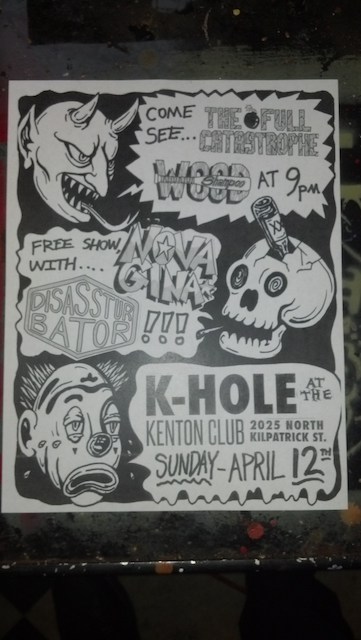 COME
SEE...
THE FULL
CATASTROPHE
WOOD
AT 9PM
FREE SHOW
WITH....
NOVA
GINA
DISASSTUR
BATOR
!!!
XX
K-HOLE AT
THE
KENTON CLUB
2025 NORTH
KILPATRICK ST.
SUNDAY-APRIL 12TH